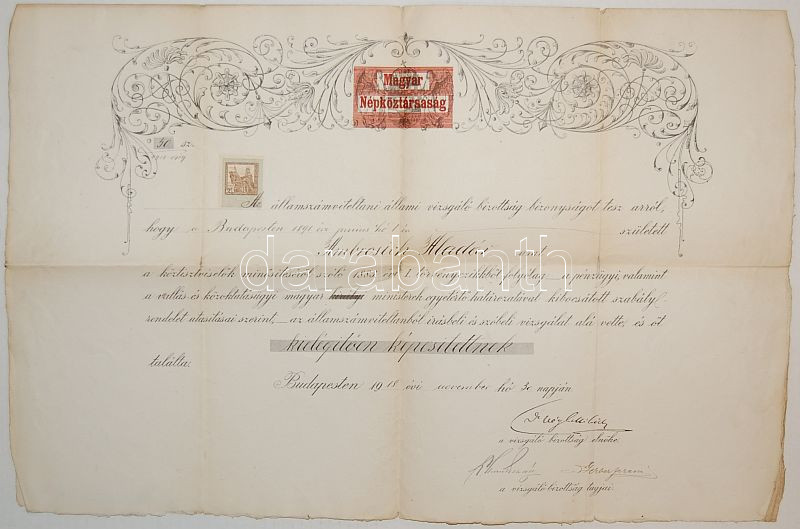 Magyar
Népköztársaság
30
Az államszámviteltani állami vizsgáló bizottság bizonyságot tesz arról,
hogy a Budapesten 1891 évi junius hó 1 én született
Ambrosich Aladár urat
a köztisztviselők minősítéséről szóló 1883. évi I. törvényczikktől folyólag a pénzügyi, valamint
a vallás és közoktatásügyi magyar királyi miniszterek egyetértő határozatával kibocsátott szabály-
rendelet utasításai szerint, az államszámviteltanból írásbeli és szóbeli vizsgálat alá vette, és őt
kielégítően képesítettnek
találta.
Budapesten 1918 évi november hó 30 napján
a vizsgáló bizottság elnöke.
a vizsgáló bizottság tagjai.
darabanth